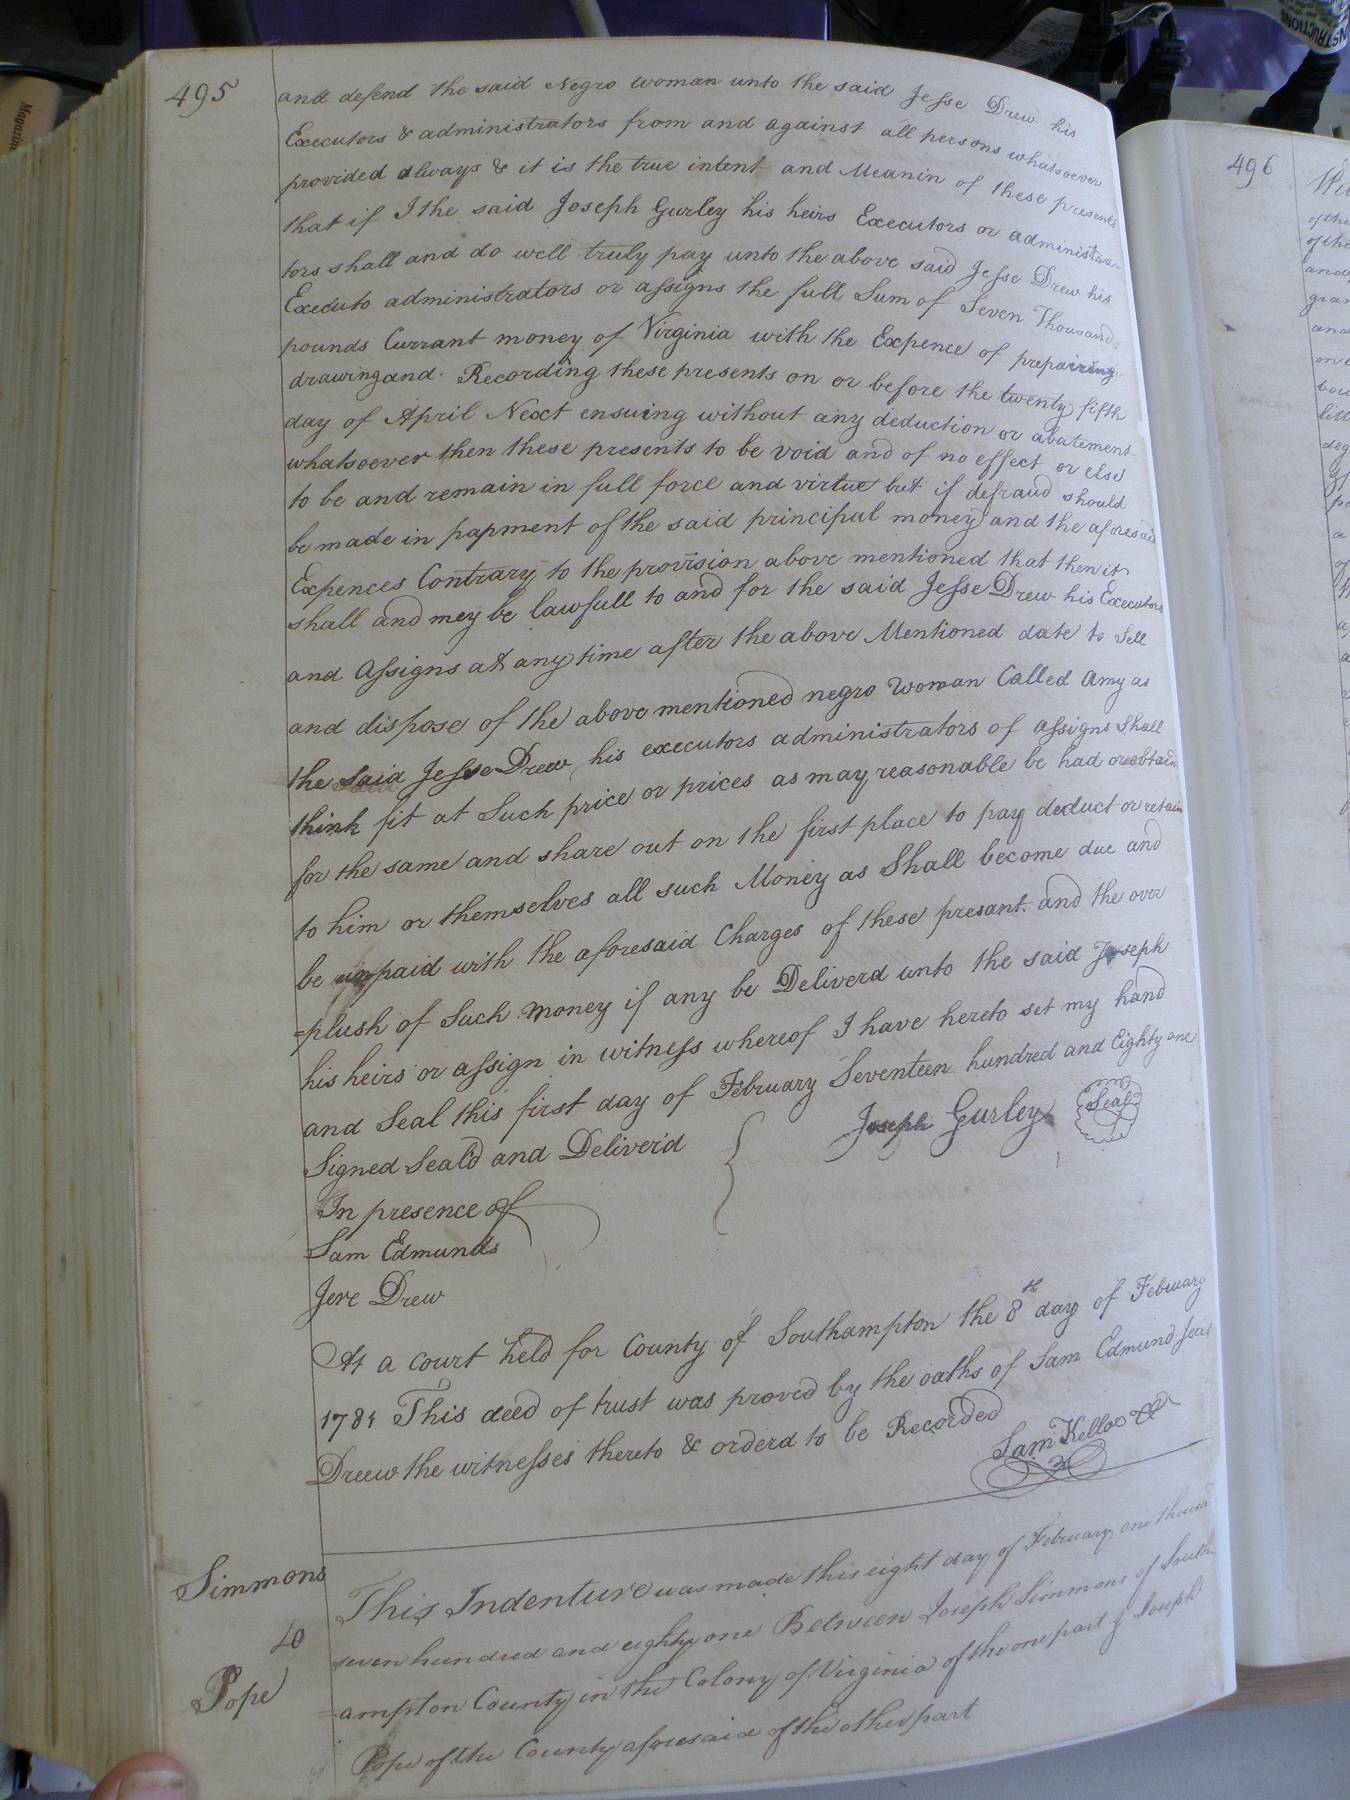 495
and defend the said Negro woman unto the said Jesse Drew his
Executors & administrators from and against all persons whatsoever
provided always & it is the true intent and Meanin of these presents
that if I the said Joseph Gurley his heirs Executors or administra-
tors shall and do well truly pay unto the above said Jesse Drew his
Executo administrators or assigns the full Sum of Seven Thousand
pounds Currant money of Virginia with the Expence of prepairing
drawing and Recording these presents on or before the twenty fifth
day of April Next ensuing without any deduction or abatement
whatsoever then these presents to be void and of no effect or else
to be and remain in full force and virtue but if defraud should
be made in papment of the said principal money and the aforesaid
Expences Contrary to the provision above mentioned that then it
shall and mey be lawfull to and for the said Jesse Drew his Executors
and Assigns at any time after the above Mentioned date to Sell
and dispose of the above mentioned negro Woman Called Amy as
the said Jesse Drew his executors administrators of assigns Shall
think fit at Such price or prices as may reasonable be had or obtain
for the same and share out on the first place to pay deduct or retain
to him or themselves all such Money as Shall become due and
be unpaid with the aforesaid Charges of these presant and the over
=plush of Such money if any be Deliverd unto the said Joseph
his heirs or assign in witness whereof I have hereto set my hand
and Seal this first day of February Seventeen hundred and Eighty one
Signed Seal'd and Deliver'd
Joseph Gurley Seal
In presence of
Sam Edmunds
Jere Drew
At a court held for County of Southampton the 8th day of February
1781 This deed of trust was proved by the oaths of Sam Edmund Jere
Dreew the witnesses thereto & orderd to be Recorded
Sam Kello
Simmons
to
Pope
This Indenture was made this eight day of February one thousa
seven hundred and eighty one Between Joseph Simmons of South
=ampton County in the Colony of Virginia of the one part & Joseph
Pope of the County aforesaid of the other part
496